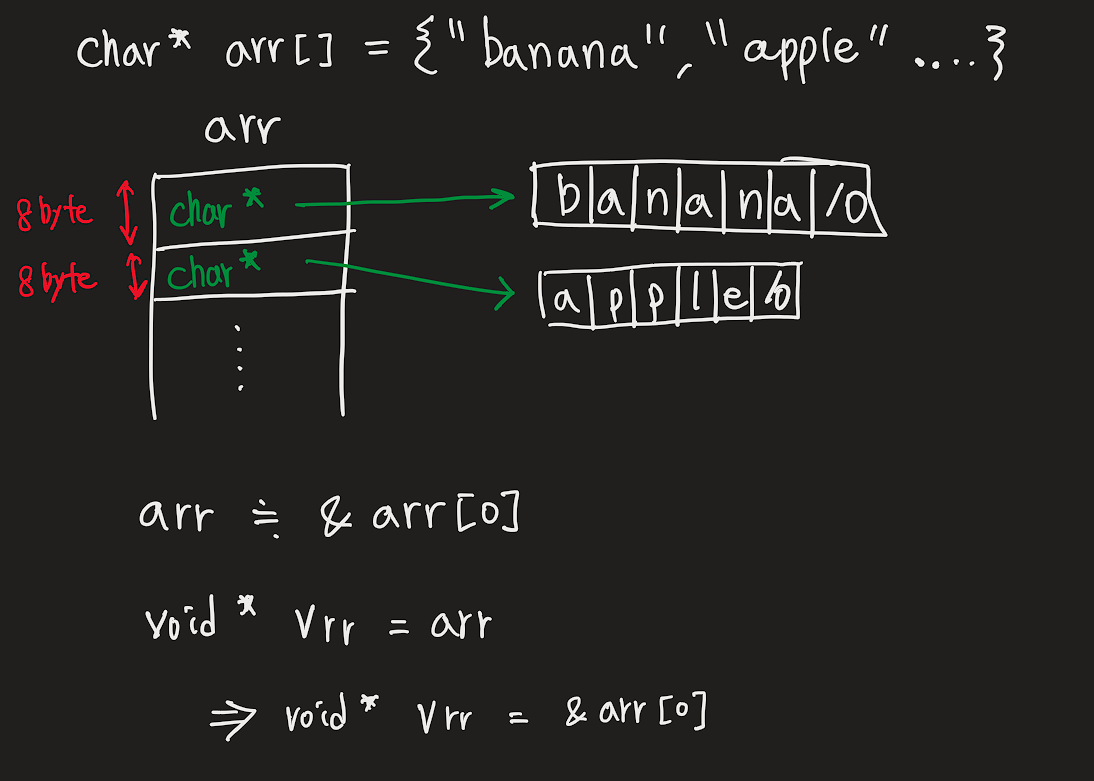 char* arr[] = {"banana", "apple" ....}
arr
8byte char* b a n a n a /0
8byte char* a p p l e /0
arr ≒ & arr[0]
void* Vrr = arr
⇒ void* Vrr = & arr[0]